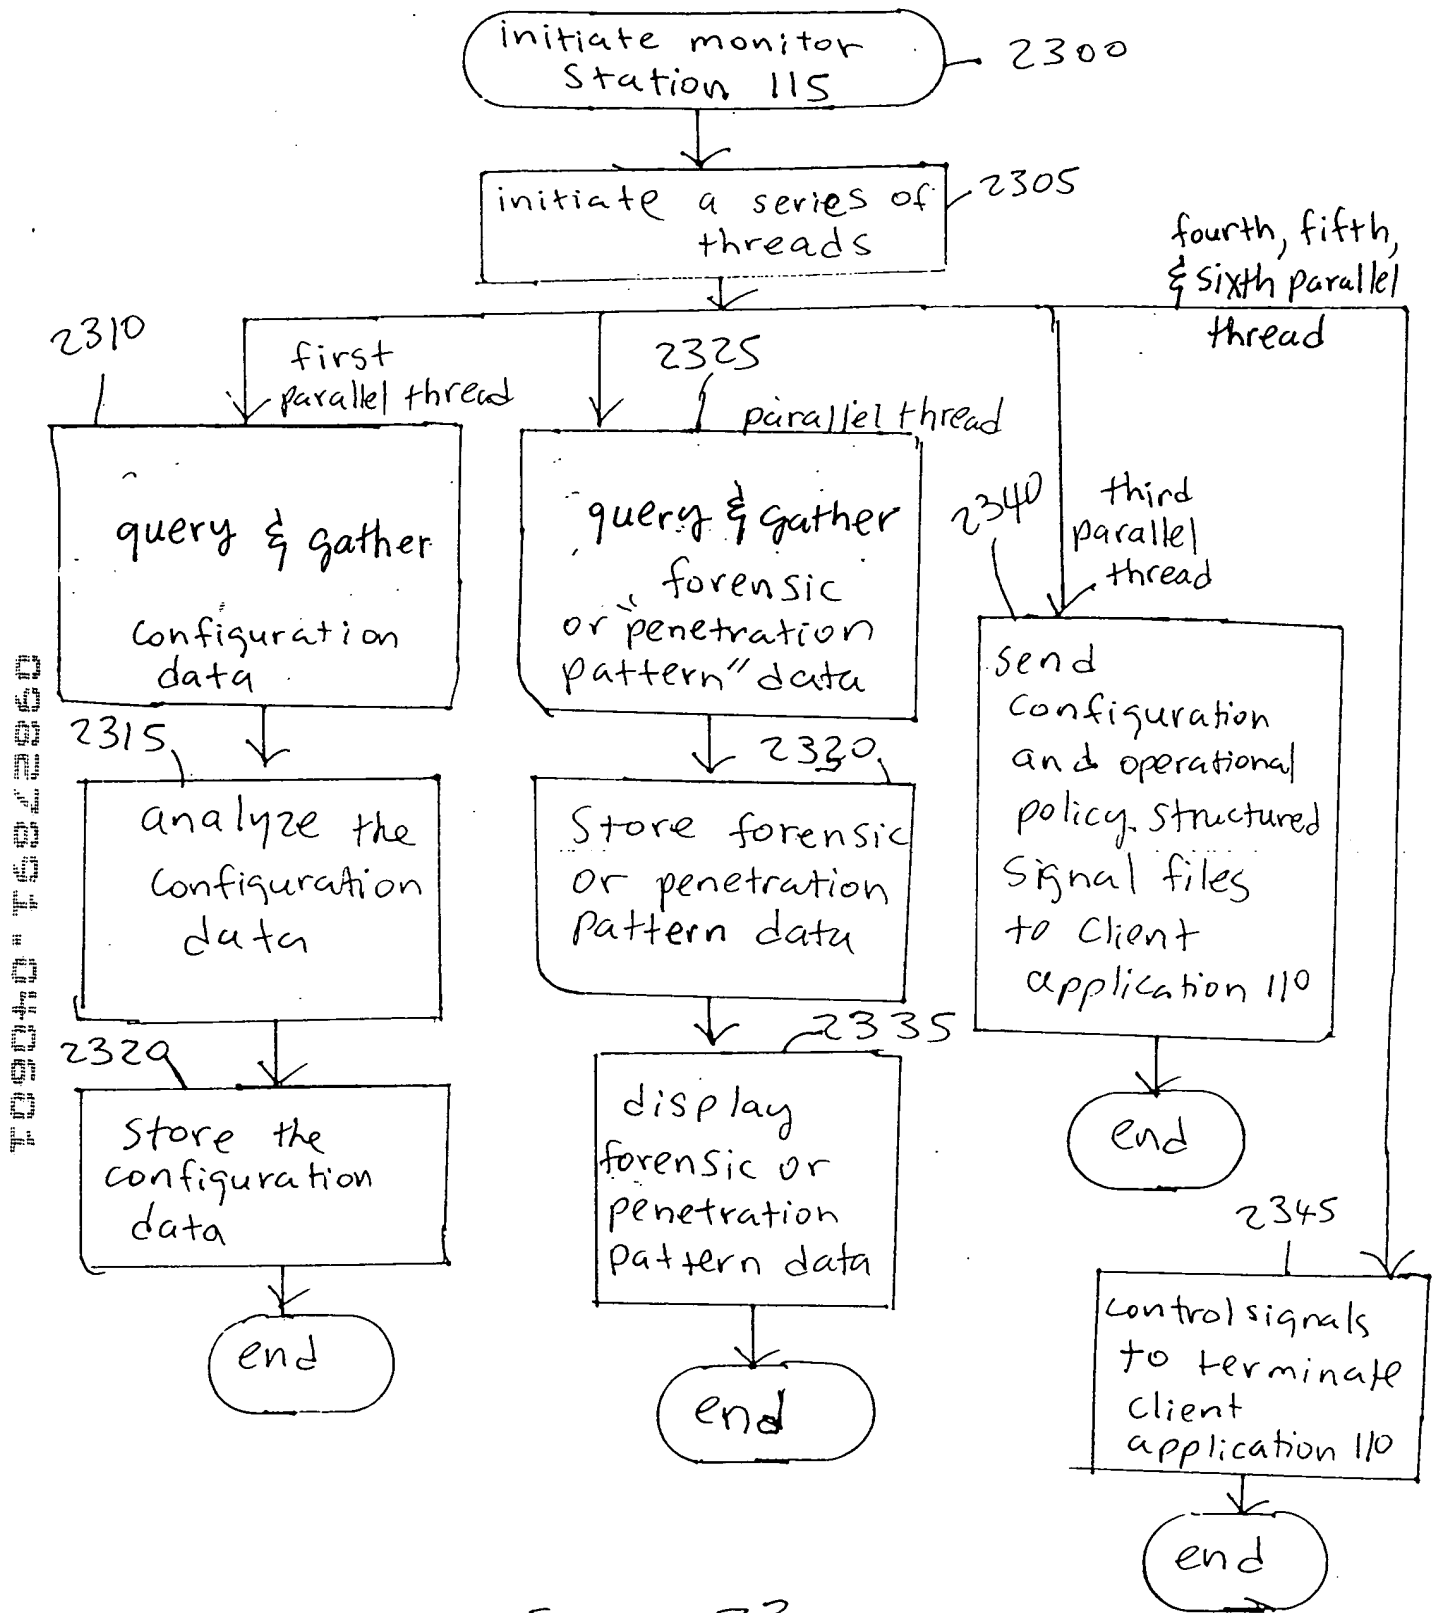 initiate monitor
Station 115
2300
initiate a series of
threads
2305
fourth, fifth,
& sixth parallel
thread
2310
first
parallel thread
2325
parallel thread
query & gather
configuration
data
query & gather
forensic
or "penetration
pattern" data
2340
third
parallel
thread
send
configuration
and operational
policy structured
signal files
to client
application 110
end
2315
analyze the
configuration
data
2330
Store forensic
or penetration
pattern data
2320
Store the
configuration
data
end
2335
display
forensic or
penetration
pattern data
end
2345
control signals
to terminate
client
application 110
end